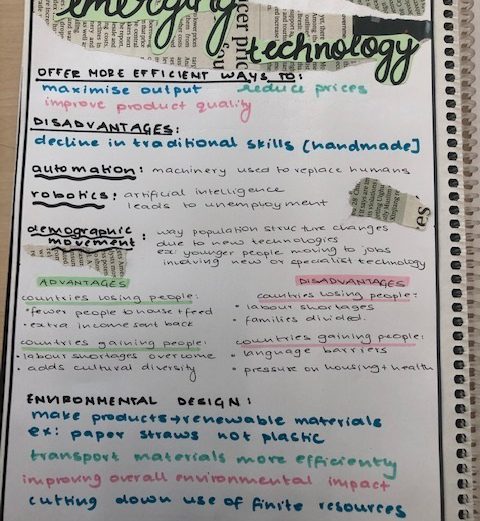 emerging
technology
OFFER MORE EFFICIENT WAYS TO:
maximise output reduce prices
improve product quality
DISADVANTAGES:
decline in traditional skills [handmade]
automation: machinery used to replace humans
robotics: artificial intelligence
leads to unemployment
demographic movement: way population structure changes
due to new technologies
ex: younger people moving to jobs
involving new or specialist technology
ADVANTAGES
countries losing people:
• fewer people to house + feed
• extra income sent back
countries gaining people:
• labour shortages overcome
• adds cultural diversity
DISADVANTAGES
countries losing people:
• labour shortages
• families divided.
countries gaining people:
• language barriers
• pressure on housing + health
ENVIRONMENTAL DESIGN:
make products → renewable materials
ex: paper straws not plastic
transport materials more efficiently
improving overall environmental impact
cutting down use of finite resources